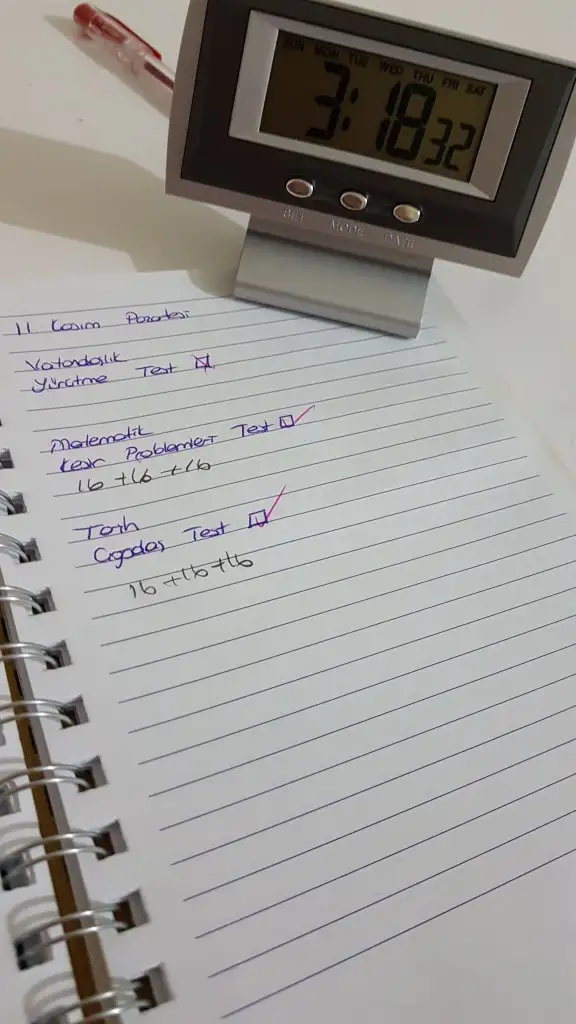 SUN MON TUE WED THU FRI SAT
3:18 32
SET MODE DATE
11 Kasım Pazartesi
Vatandaşlık
Yürütme Test
Matematik
Kesir Problemleri Test
16 + 16 + 16
Tarih
Çağdaş Test
16 + 16 + 16